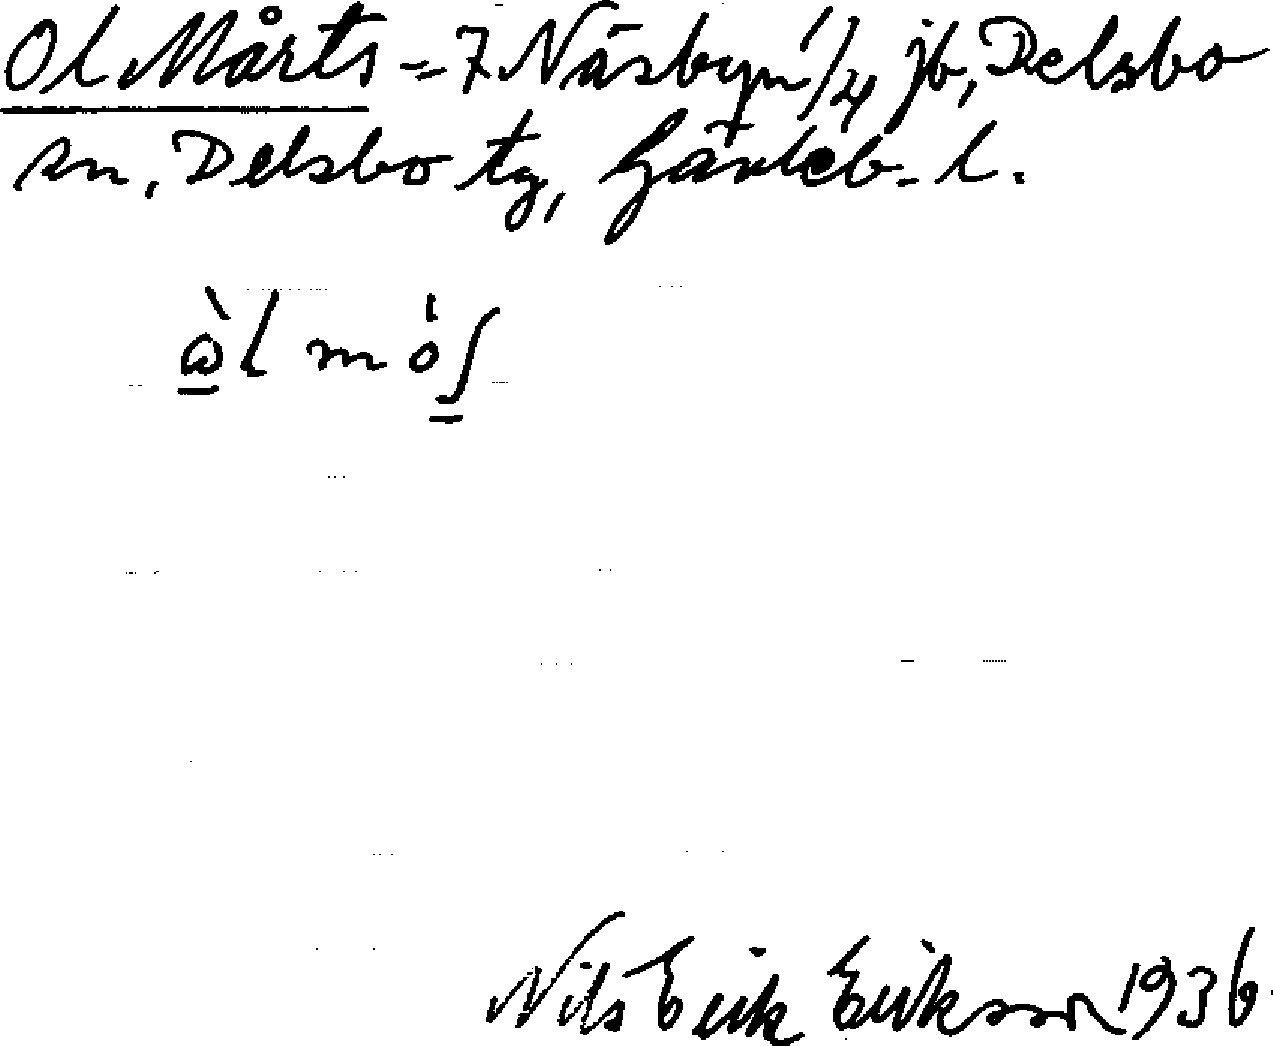 Ol Mårts = 7 Näsbyn 1/4 jb, Delsbo
sn, Delsbo tg, Gävleb. l.
ὼl móʃ
Nils Erik Eriksson 1936